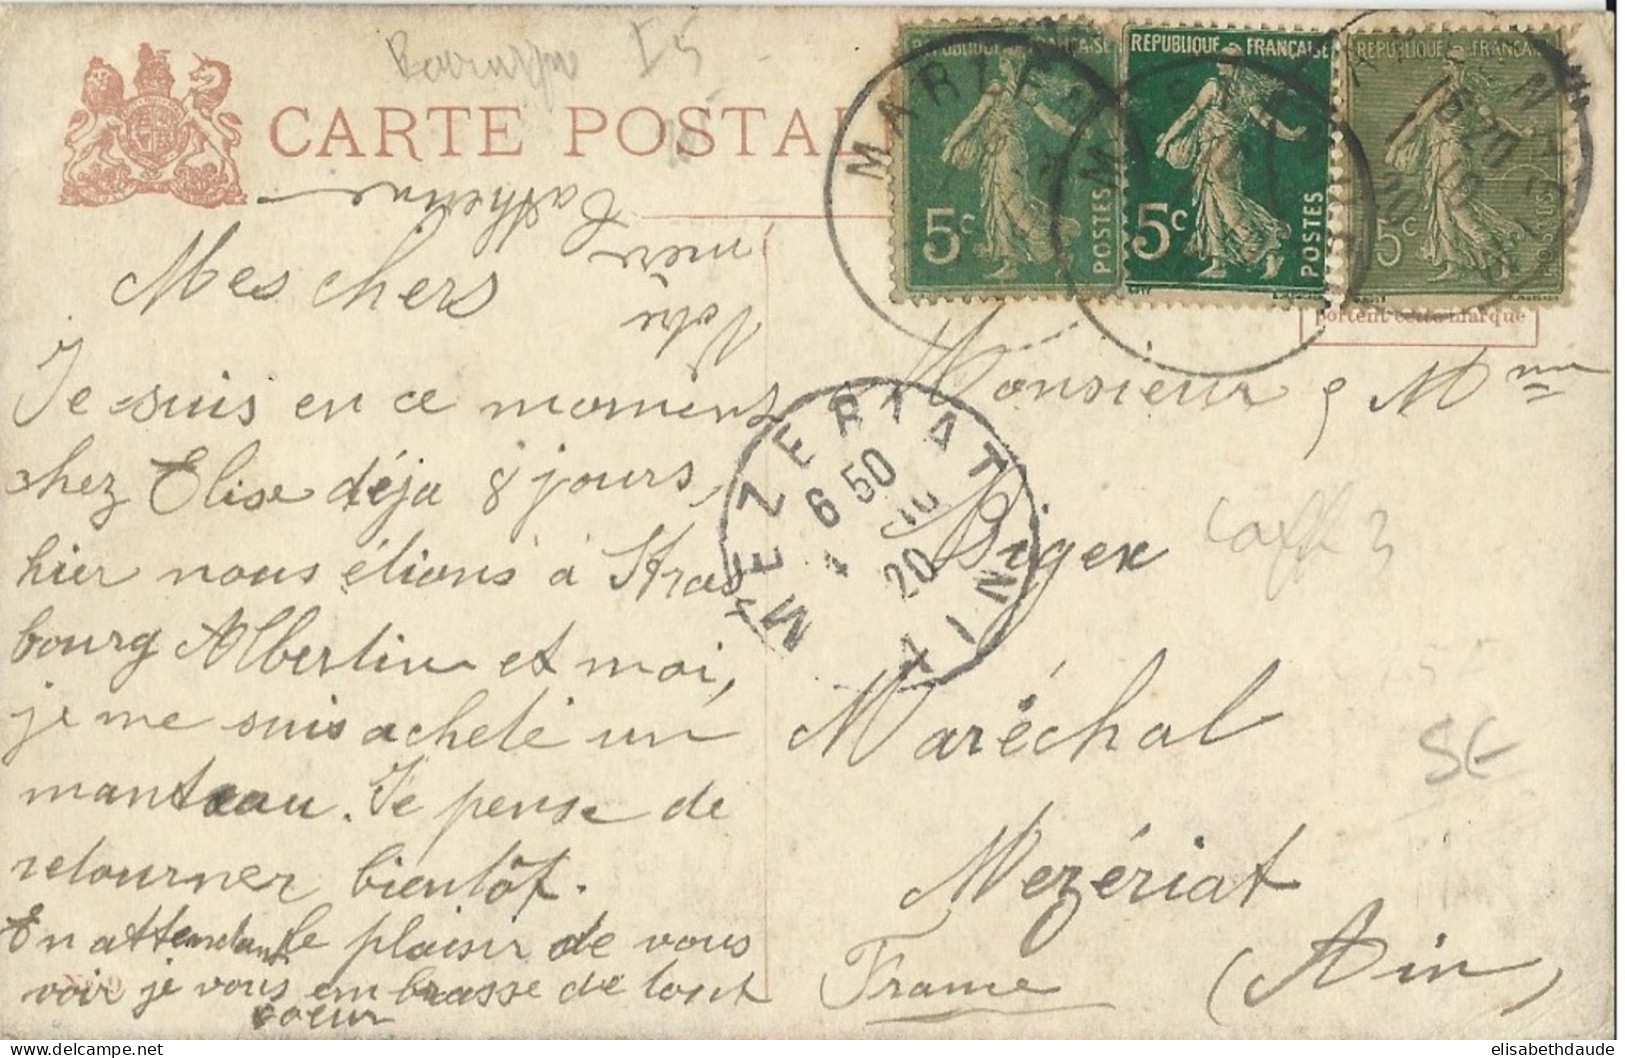 CARTE POSTAL
RÉPUBLIQUE FRANÇAISE
5c
POSTES
RÉPUBLIQUE FRANÇAISE
5c
POSTES
RÉPUBLIQUE FRANÇAISE
portent cette marque
Mes chers
Je suis en ce moment
chez Elise déja 8 jours,
hier nous étions à Stras
bourg Albertine et moi,
je me suis acheté un
manteau. Je pense de
retourner bientôt.
En attendant le plaisir de vous
voir je vous embrasse de tout
coeur
Votre
mère
Catherine
MÉZÉRIAT
6 50
20
AIN
Monsieur & Mme
Bigex
Maréchal
Mezériat
France (Ain)
elisabethdaude